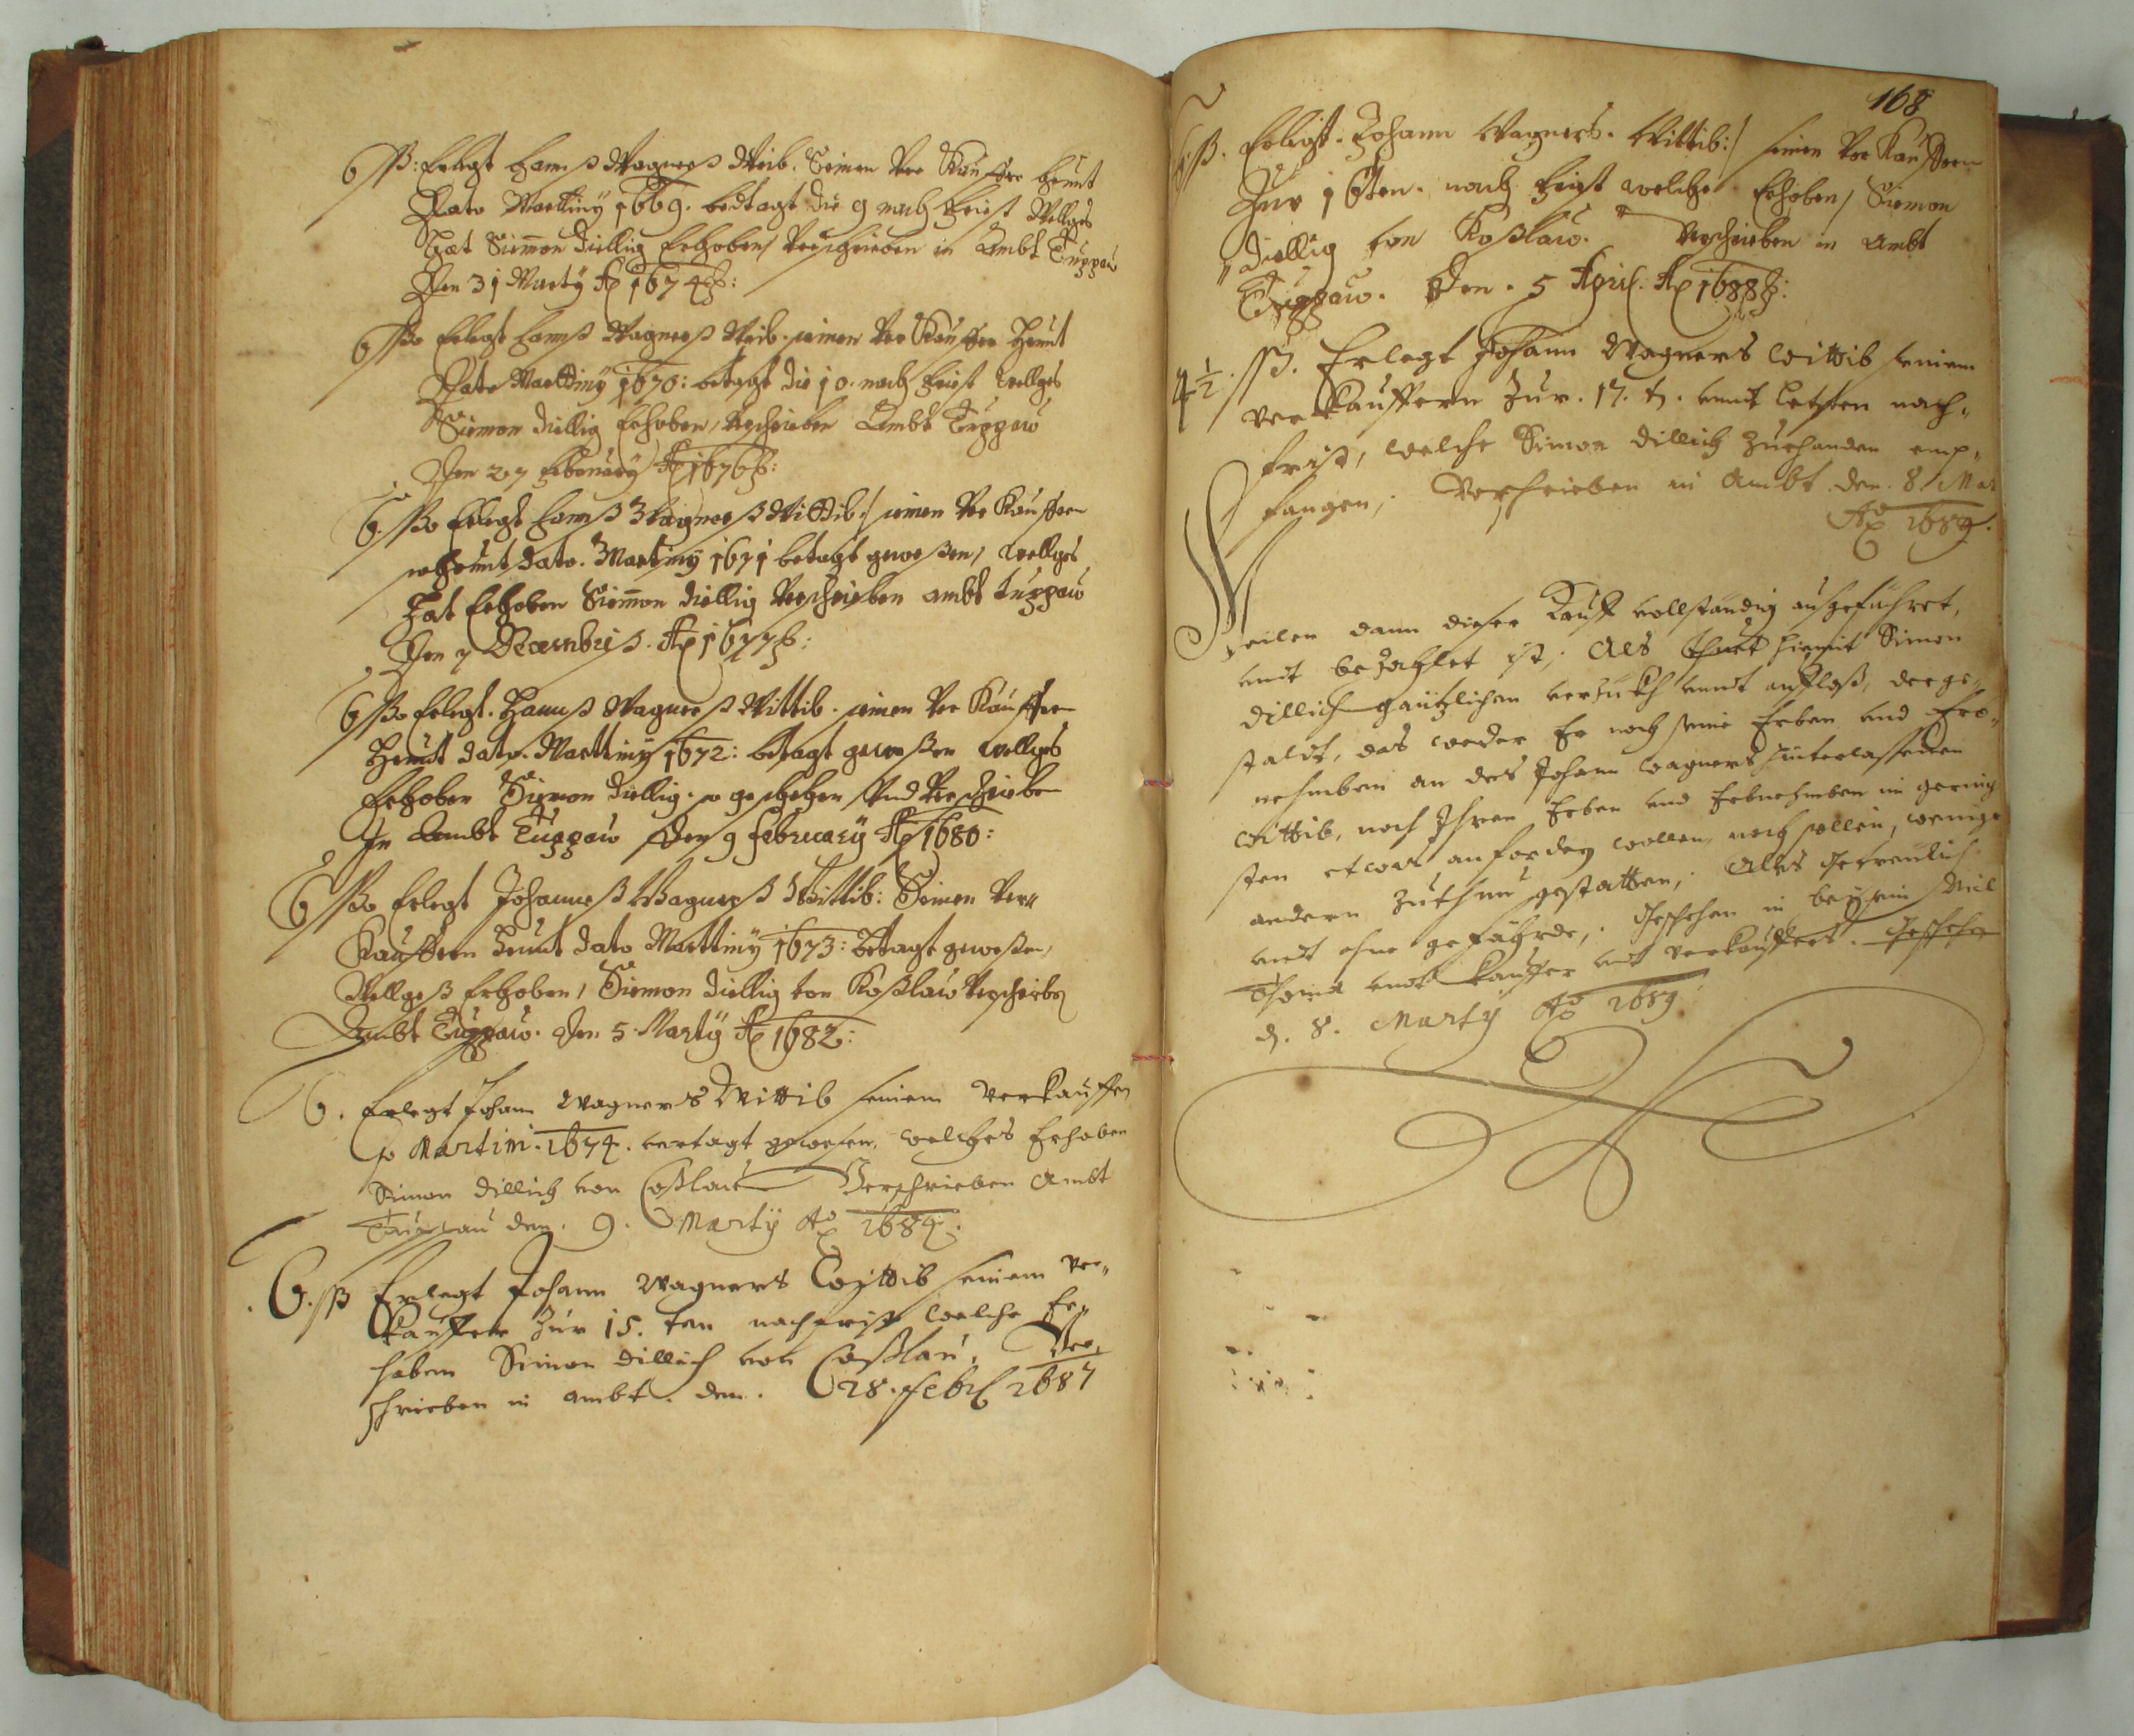 6 ßß: Erlegt Hannß Wagnerß Wtib. Seinen Ver Kauffer heunt
Dato Marttiny 1669. bedtagt die 9 nach frist Wellges
Hat Siemon Diellig Erhoben / Verschrieben in Ambt Duppau
Den 31 Marty Ao 1674
6 ßßo Erlegt Hannß Wagnerß Wtib. seinen Ver Kauffer Heunt
Dato Marttiny 1670: betagt die 10. nach frist wellges
Siemon Diellig Erhoben, Verschrieben Ambt Duppau
Den 27 February Ao 1676
6. ßßo Erlegt Hannß Wagnerß Wittib. / seinen Ver Kauffern
so heunt dato. Martiny 1671 betagt geweßen, wellges
Hat Erhoben Siemon Diellig Verschrieben ambt Duppau
Den 7 Decembris. Ao 1677
6 ßßo Erlegt. Hannß Wagnerß Wittib. seinen Ver Kauffern
Heunt dato. Marttiny 1672: betagt geweßen wellges
Erhoben Siemon Diellig. so geschehen Und Verschrieben
In Ambt Duppau Den 9 February Ao 1680:
6 ßßo Erlegt Johanneß Wagnerß Wittib: Seinen Ver„
Kauffern Heunt dato Marttiny 1673: betagt geweßen,
Wellgeß Erhoben, Siemon Diellig von Koßlaw Verschriebe
Ambt Duppau. Den 5 Marty Ao 1682:
6. Erlegt Johann Wagners Wittib seinem Verkauffer
so Martini. 1674. vertagt gewesen, welches Erhoben
Simon Dillich von Coßlau Verschrieben Ambt
Duppau den. 9. Marty Ao 1684.
6. ßß Erlegt Johann Wagners Wittib seinem Ver„
kauffern Zur 15. ten nachfrist welche Er„
hoben Simon Dillich von Coßlau, Ver„
schrieben in ambt. den. 28. Febr 1687
168
6. ßß. Erlegt. Johann Wagners. Wittib: / seinen Ver Kauffern
Zur 16ten. nach frist welche Erhoben / Siemon
Diellig von Koßlaw. Verschrieben in Ambt
Duppaw. Den. 5 April. Ao 1688
4 1/2. ßß. Erlegt Johann Wagners Wittib seinem
verkauffern Zur. 17. t. undt letzten nach„
frist, welche Simon Dillich Zuehanden emp„
fangen, Verschrieben in Ambt den. 8. Mar
Ao 1689.
Weilen dann dieser Kauff vollständig außgeführet,
undt bezahlet ist, Als Thuet hiemit Simon
Dillich gäntzlichen verzücht unndt aufflaß, derge„
staldt, das weder Er noch seine Erben und Erb„
nehmben an des Johann Wagners hinterlassenen
Wittib, noch Ihren Erben und Erbnehmben im gering
sten etwas anfordern wollen, noch sollen, wenige
andern Zuthun gestatten, Alles getreulich
undt ohne gefährde, Geschehen in beysein
undt kauffer undt verkauffers. Geschehen
d. 8. Marty Ao 1689